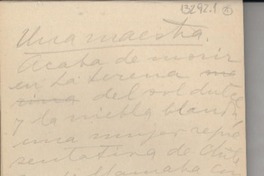 13292.1
Una maestra.
Acaba de morir
en La Serena
del sol dulce
y la niebla blanda
una mujer repre
sentativa de Chile
llamaba